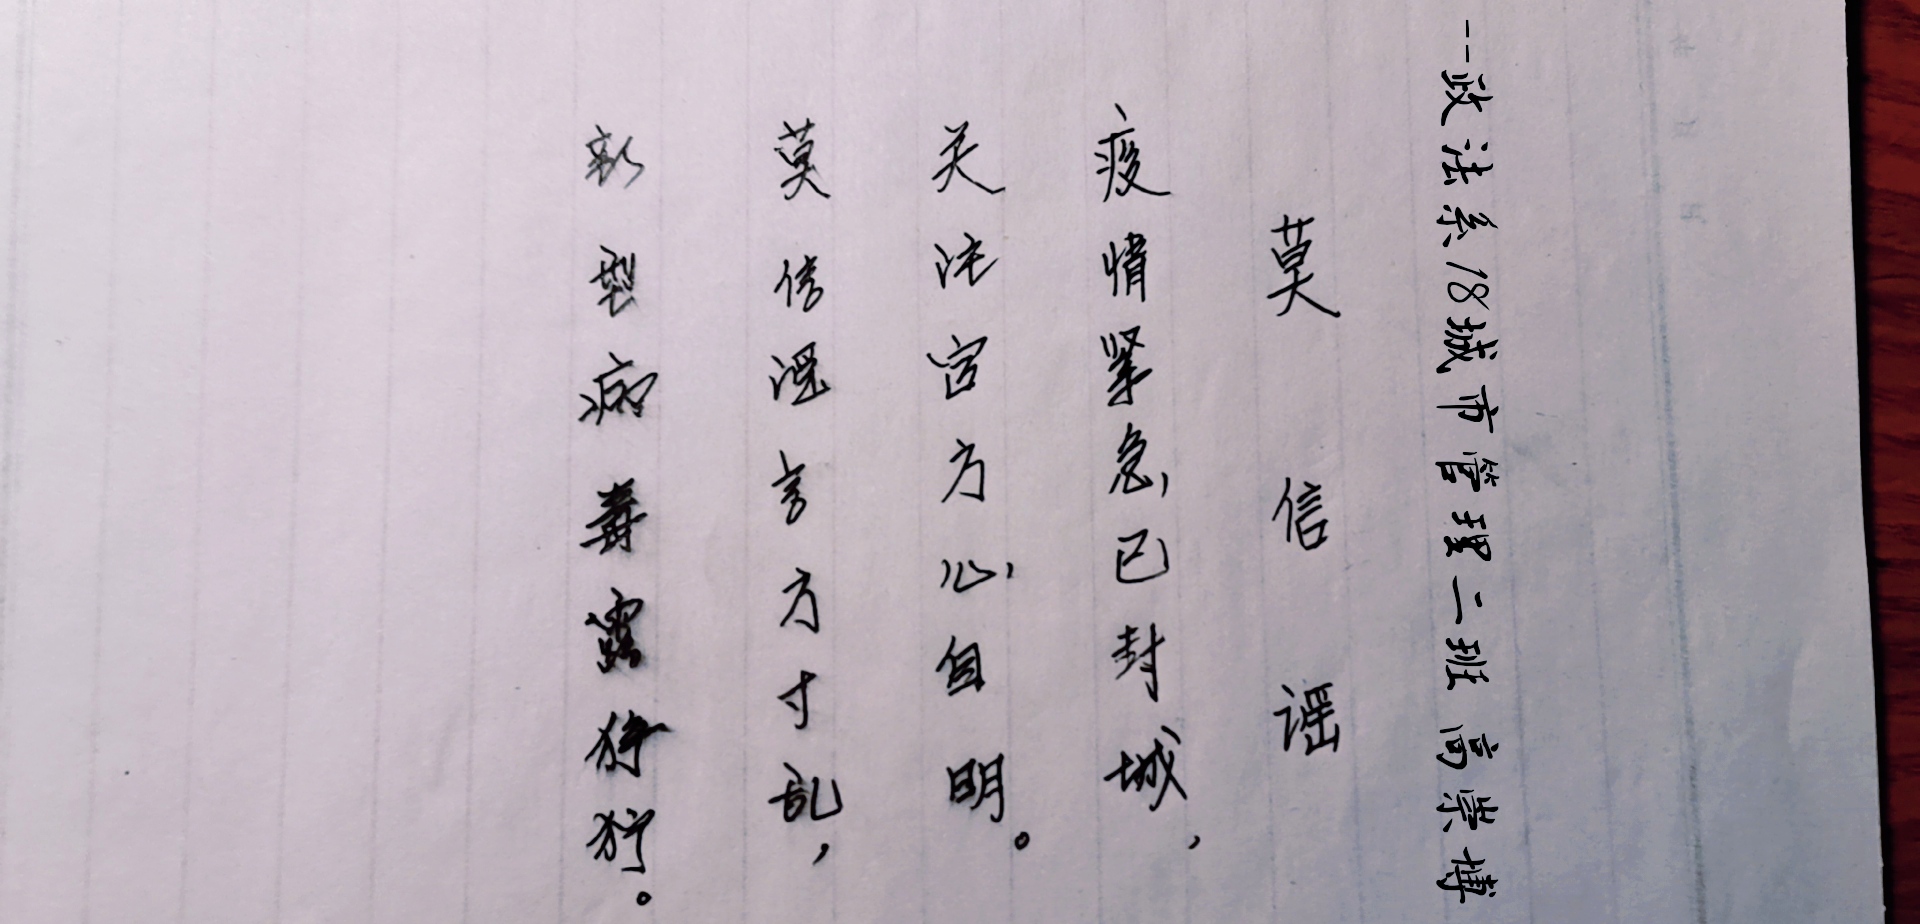 --政法系18城市管理二班 高崇博
莫信谣
疫情紧急,已封城,
关注官方心,自明。
莫信谣言方寸乱,
新型病毒露狰狞。